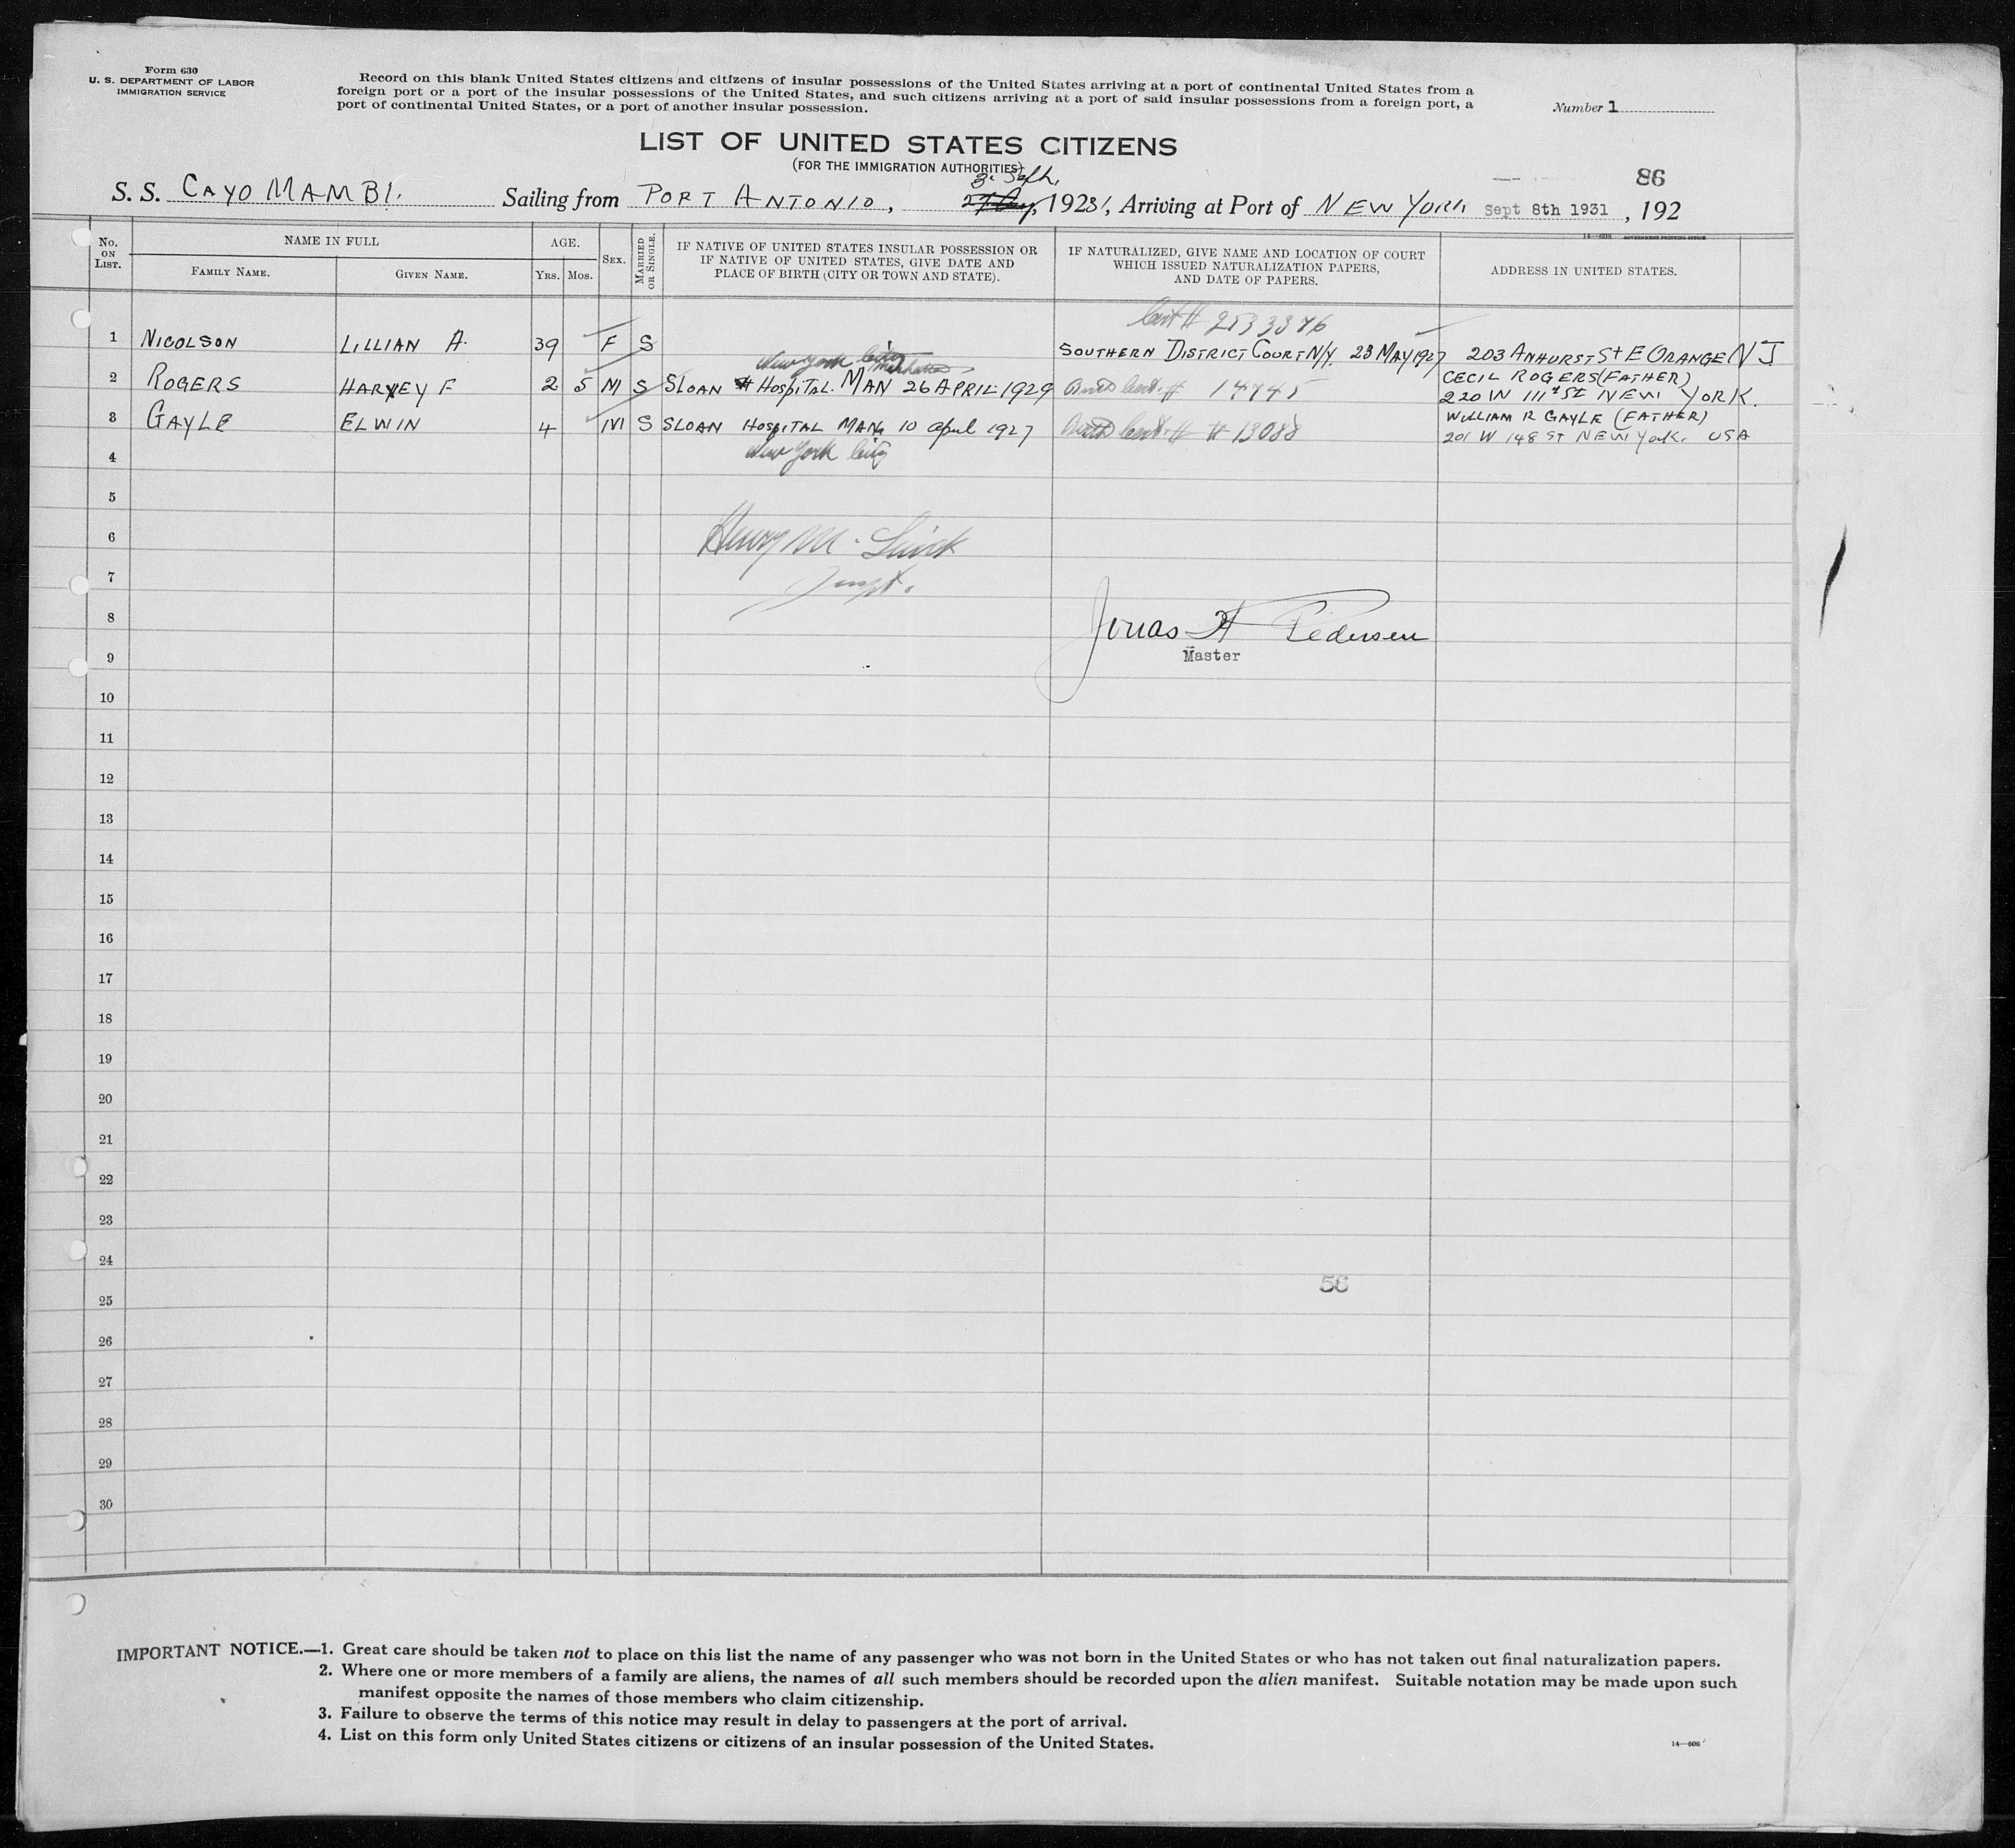 Form 630
U. S. DEPARTMENT OF LABOR
IMMIGRATION SERVICE
Record on this blank United States citizens and citizens of insular possessions of the United States arriving at a port of continental United States from a
foreign port or a port of the insular possessions of the United States, and such citizens arriving at a port of said insular possessions from a foreign port, a
port of continental United States, or a port of another insular possession.
Number 1
LIST OF UNITED STATES CITIZENS
(FOR THE IMMIGRATION AUTHORITIES)
86
S. S. CAYO MAMBI. Sailing from PORT ANTONIO, 3. Sept., 1931, Arriving at Port of NEW YORK Sept 8th 1931, 192
14—608 GOVERNMENT PRINTING OFFICE
No. ON LIST.
NAME IN FULL
FAMILY NAME.
GIVEN NAME.
AGE.
YRS. MOS.
SEX.
MARRIED OR SINGLE.
IF NATIVE OF UNITED STATES INSULAR POSSESSION OR
IF NATIVE OF UNITED STATES, GIVE DATE AND
PLACE OF BIRTH (CITY OR TOWN AND STATE).
IF NATURALIZED, GIVE NAME AND LOCATION OF COURT
WHICH ISSUED NATURALIZATION PAPERS,
AND DATE OF PAPERS.
ADDRESS IN UNITED STATES.
Cert # 2533376
1 NICOLSON LILLIAN A. 39 F S SOUTHERN DISTRICT COURT N/Y. 23 MAY 1927 203 ANHURST St E ORANGE N J
New York City
2 ROGERS HARVEY F 2 5 M S SLOAN HOSPITAL. MAN 26 APRIL 1929 Birth Cert. # 14745 CECIL ROGERS (FATHER)
220 W 111th St NEW YORK.
3 GAYLE ELWIN 4 M S SLOAN HOSPITAL MAN, 10 April 1927 Birth Cert. # 13088 WILLIAM R GAYLE (FATHER)
201 W 148 ST NEW York. USA
4 New York City
5
6 Henry M.
7 Inspt.
8 Jonas H Pedersen
Master
9
10
11
12
13
14
15
16
17
18
19
20
21
22
23
24
56
25
26
27
28
29
30
IMPORTANT NOTICE.—1. Great care should be taken not to place on this list the name of any passenger who was not born in the United States or who has not taken out final naturalization papers.
2. Where one or more members of a family are aliens, the names of all such members should be recorded upon the alien manifest. Suitable notation may be made upon such
manifest opposite the names of those members who claim citizenship.
3. Failure to observe the terms of this notice may result in delay to passengers at the port of arrival.
4. List on this form only United States citizens or citizens of an insular possession of the United States.
14—608